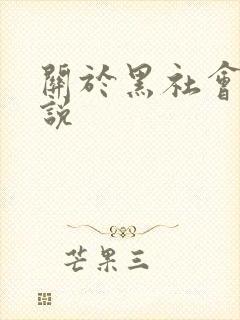 關於黑社會
說
芒果三